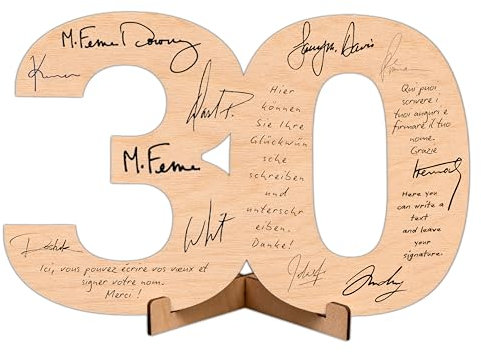 30
M.Feme Downy
M.Feme
Hier
können
Sie Ihre
Glückwün
sche
schreiben
und
unterschr
eiben.
Danke!
Ici, vous pouvez écrire vos vœux et
signer votre nom.
Merci !
Davis
Qui puoi
scrivere i
tuoi auguri e
firmare il tuo
nome.
Grazie
Here you
can write a
text
and leave
your
signature.